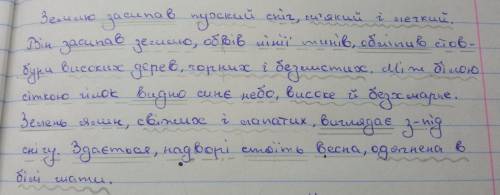 Землю засипав пухкий сніг, м'який і легкий.
Він засипав землю, обвів лінії тинів, обліпив стов-
бури високих дерев, чорних і безлистих. Між білою
сіткою гілок видно синє небо, високе й безхмарне.
Зелень ялин, світлих і лапатих, виглядає з-під
снігу. Здається, надворі стоїть весна, одягнена в
білі шати.